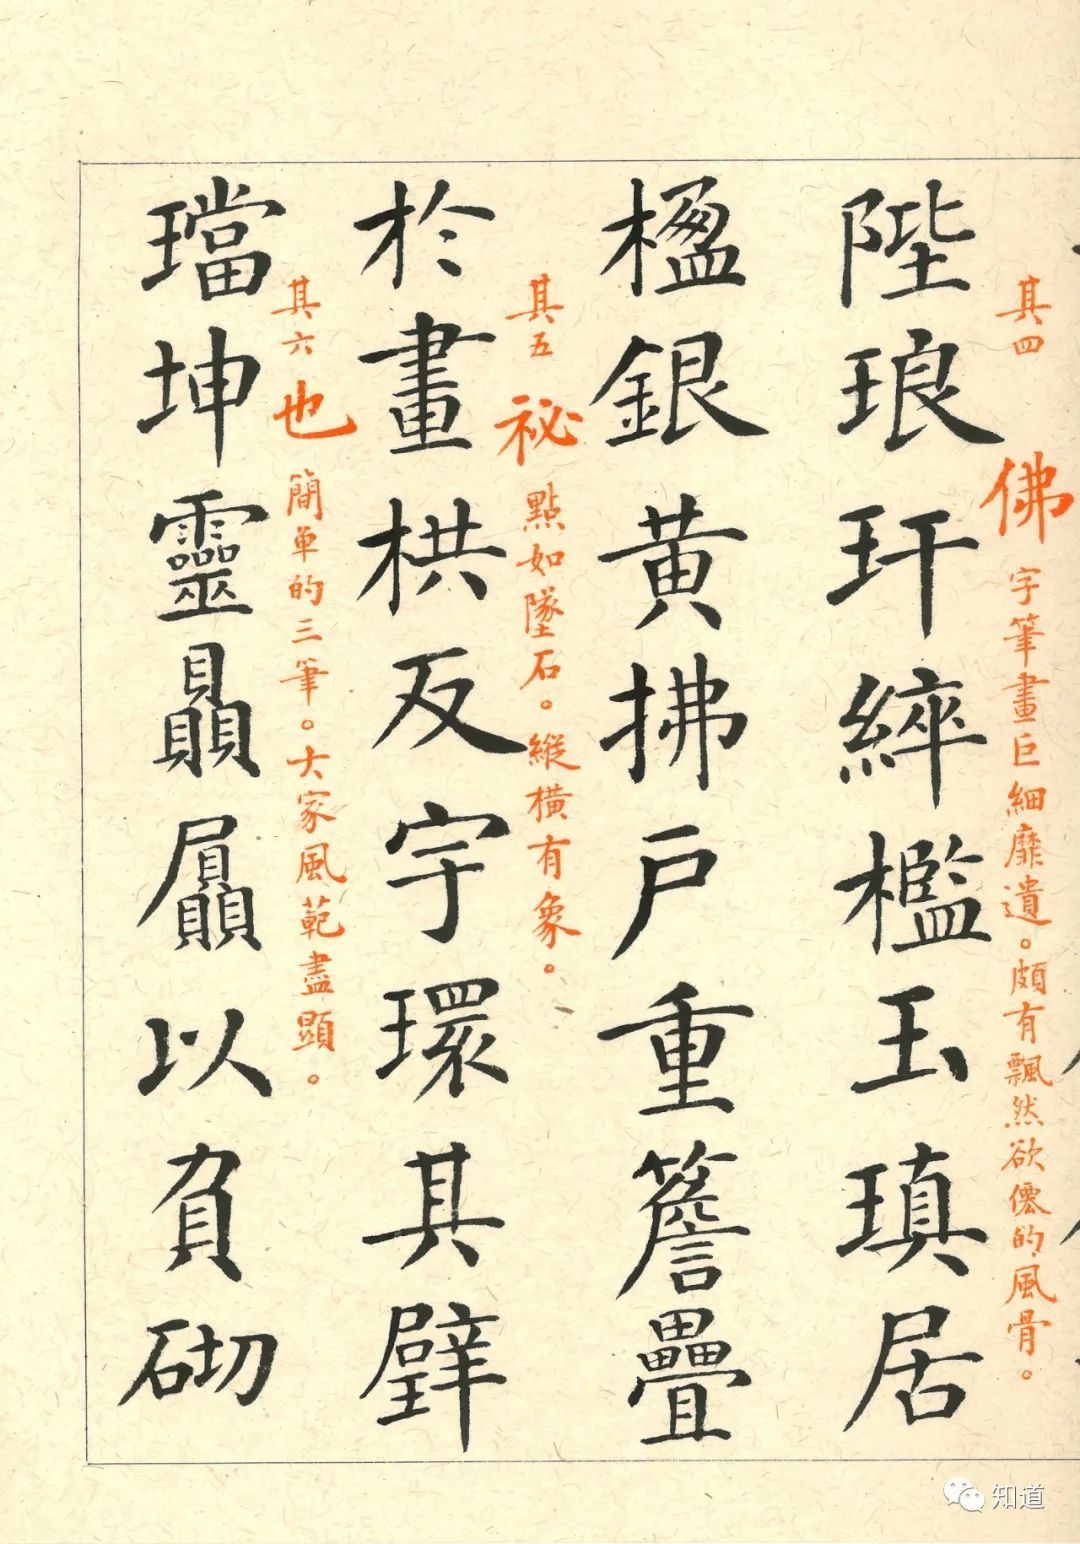 其四 佛 字筆畫巨細靡遺。頗有飄然欲僊的風骨。
陛琅玕綷檻玉瑱居
楹銀黄拂戶重簷疊
其五 祕 點如墜石。縱橫有象。
於畫栱反宇環其璧
其六 也 簡单的三筆。大家風範盡顯。
璫坤靈贔屭以負砌
知道